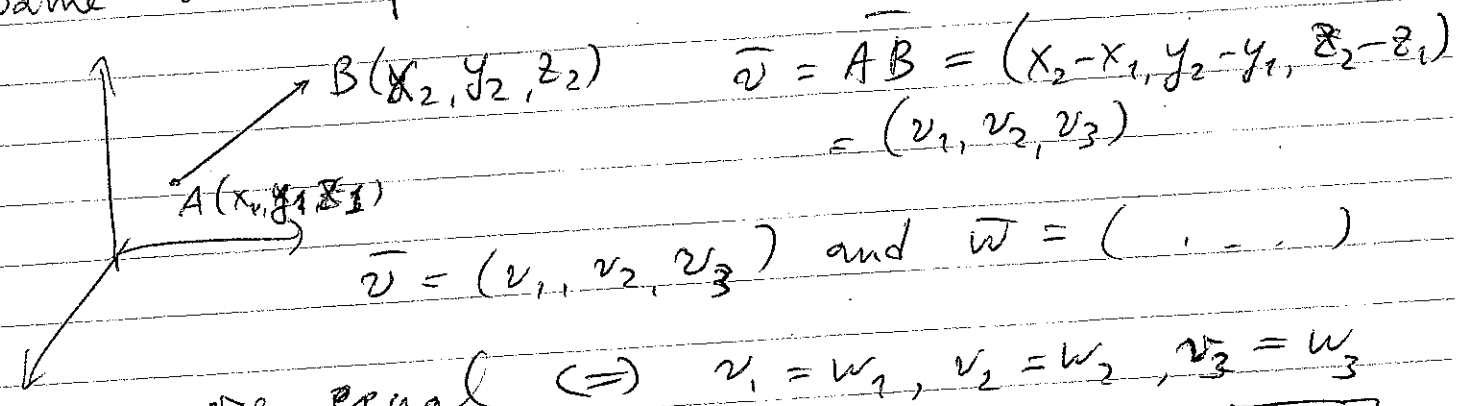 same
B(x₂, y₂, z₂) v̄ = A̅B̅ = (x₂-x₁, y₂-y₁, z₂-z₁)
= (v₁, v₂, v₃)
A(x₁, y₁, z₁)
v̄ = (v₁, v₂, v₃) and w̄ = ( . - . )
are equal (=) v₁ = w₁, v₂ = w₂, v₃ = w₃